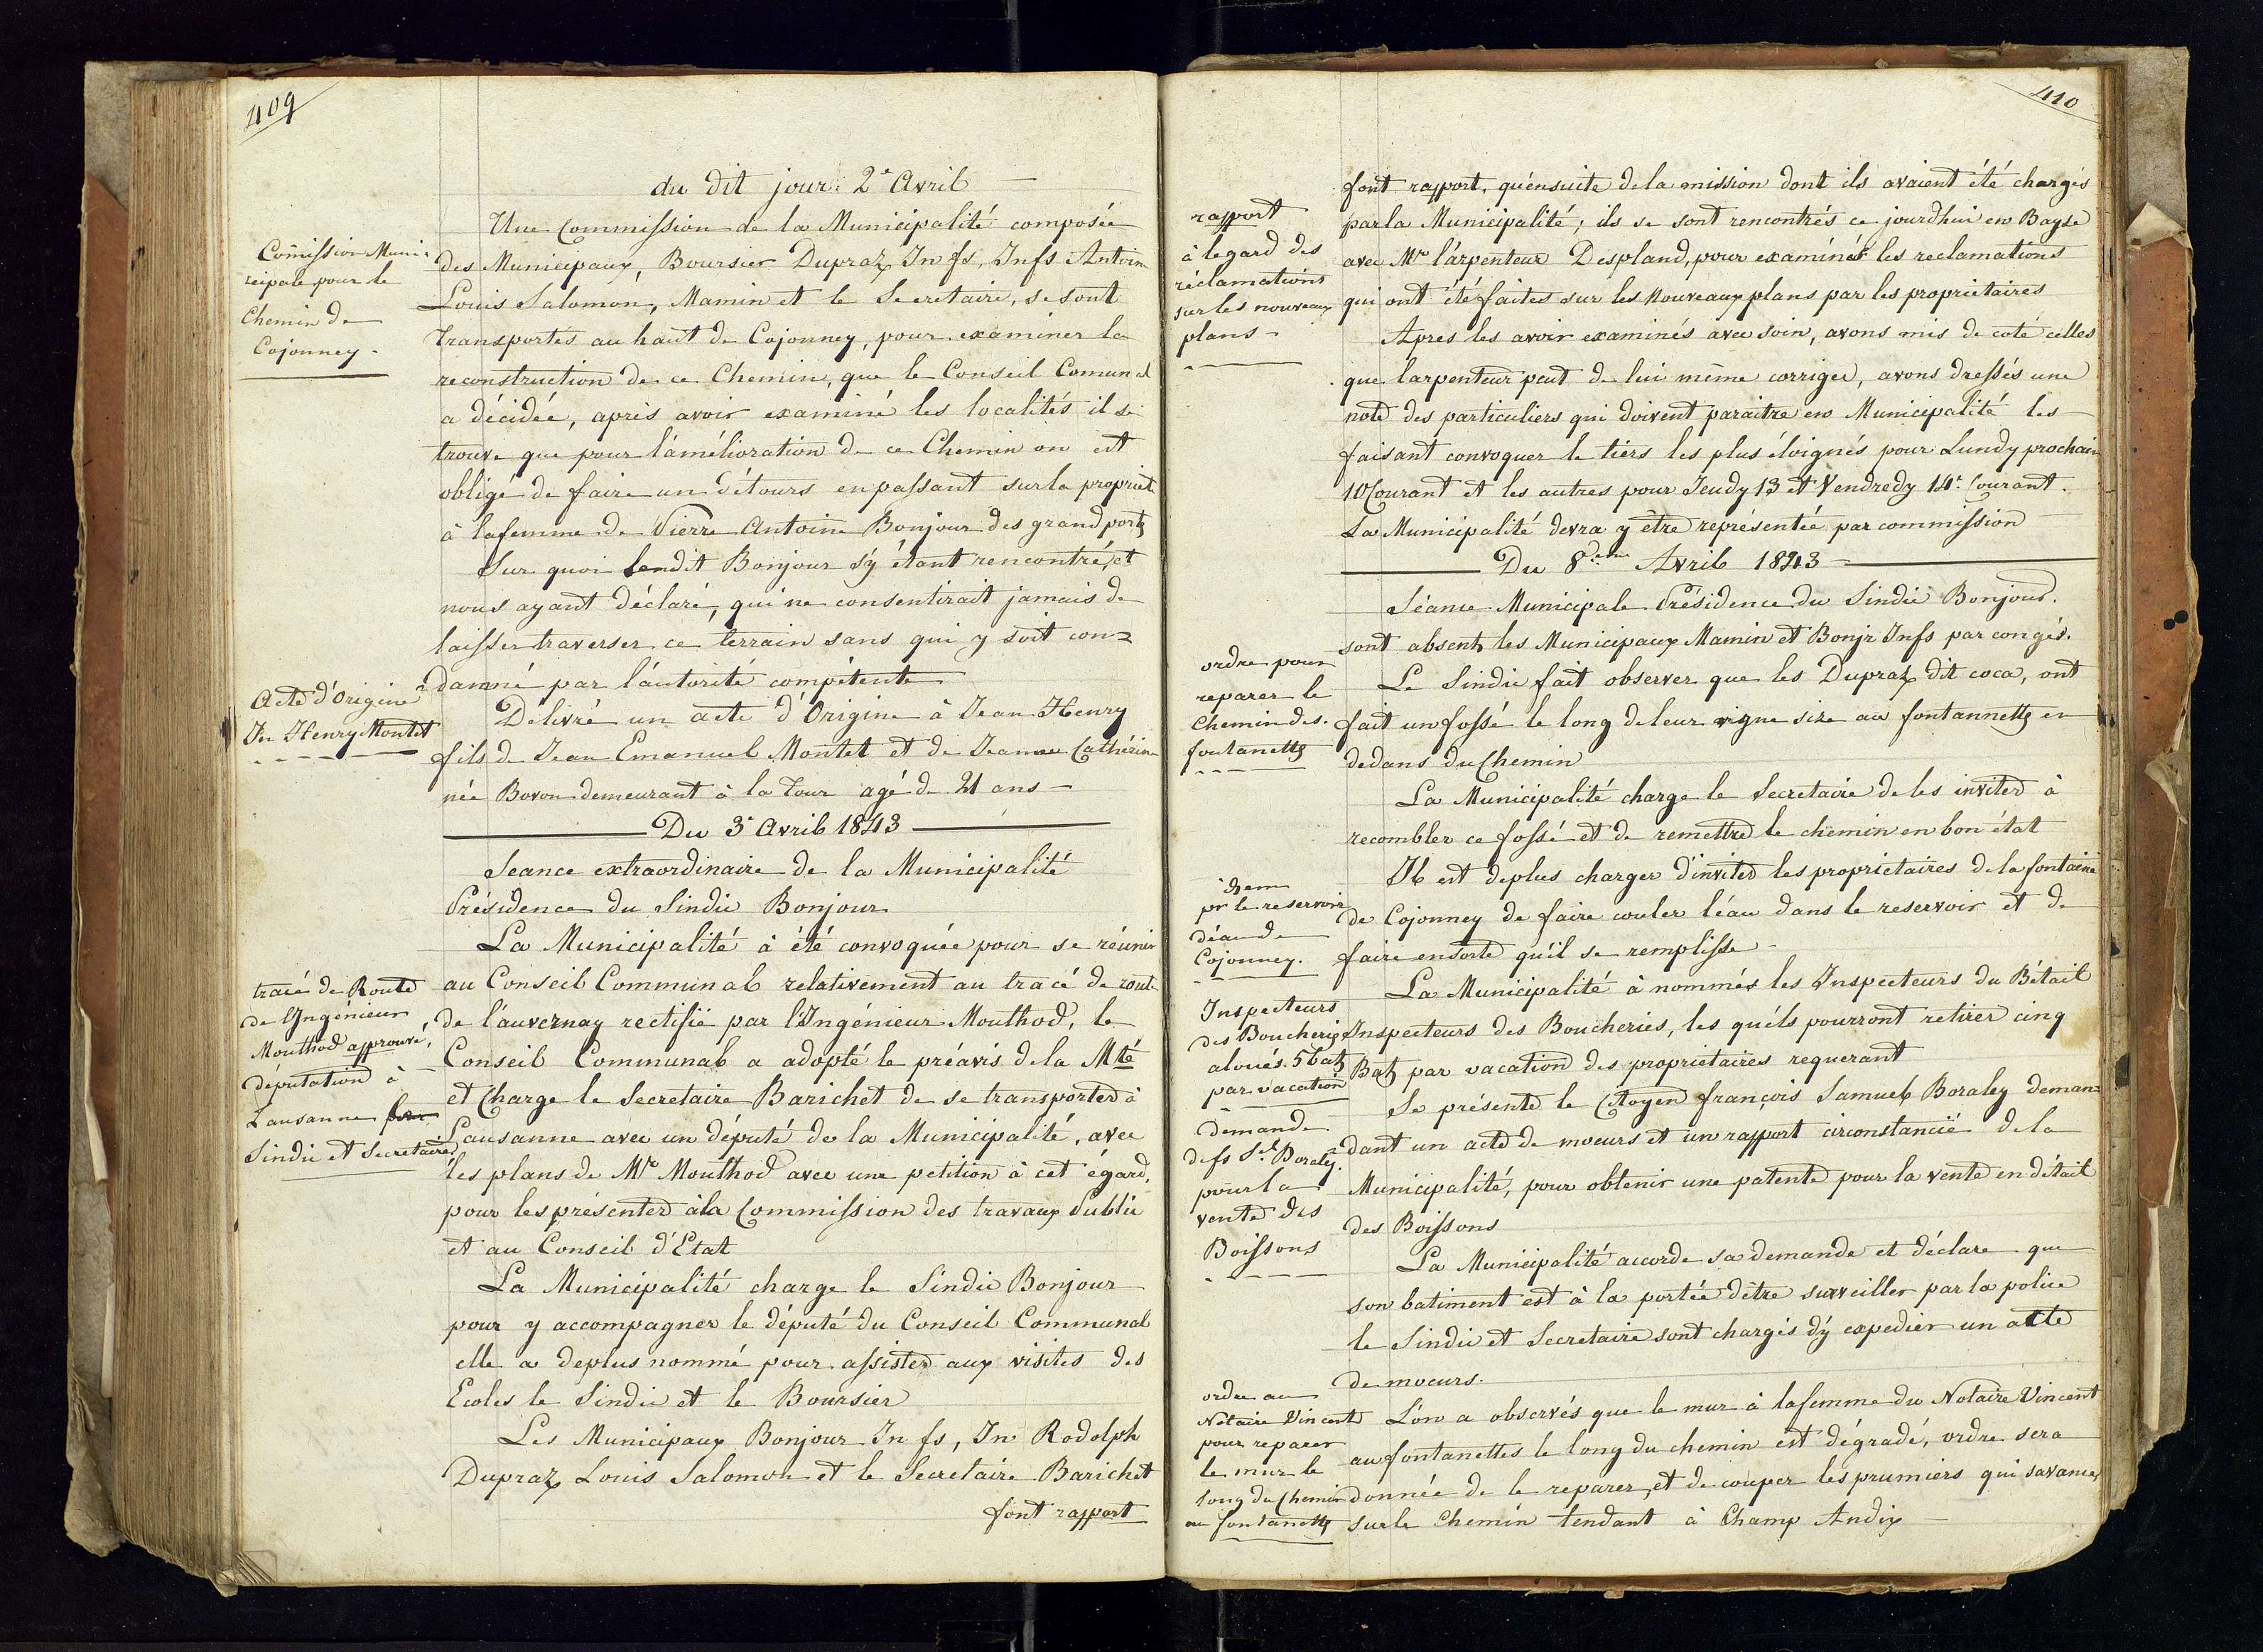 409
du dit jour 2e Avril
Commission Muni-
cipale pour le
Chemin de
Cojonney.
Une Commission de la Municipalité composée
des Municipaux, Boursier Dupraz Jn fs, Jnfs Antoin
Louis Salomon, Mamin et le Secretaire, se sont
transportés au haut de Cojonney, pour examiner la
reconstruction de ce Chemin, que le Conseil Comunal
a décidée, après avoir examiné les localités il se
trouve que pour l'amélioration de ce Chemin on est
obligé de faire un détours en passant sur la proprieté
à la femme de Pierre Antoine Bonjour des grand portz
Sur quoi ledit Bonjour s'y étant rencontré, et
nous ayant déclaré, qui ne consentirait jamais de
laisser traverser ce terrain sans qui y soit con=
=danné par l'autorité compétente
Acte d'Origine
Jn Henry Montet
Delivré un acte d'Origine à Jean Henry
fils de Jean Emanuel Montet et de Jeanne Cathérine
née Bovon demeurant à la Tour agé de 21 ans
Du 3e Avril 1843
Seance extraordinaire de la Municipalité
Présidence du Sindic Bonjour
tracé de Route
de l'Ingénieur
Mouthod approuvé,
députation à
Lausanne
Sindic et Secretaire
La Municipalité à été convoquée pour se réunir
au Conseil Communal relativement au tracé de route
de l'auvernay rectifié par l'Ingénieur Mouthod, le
Conseil Communal a adopté le préavis de la Mté
et Charge le Secretaire Barichet de se transporter à
Lausanne avec un député de la Municipalité, avec
les plans de Mr Mouthod avec une petition à cet égard,
pour les présenter à la Commission des travaux Public
et au Conseil d'Etat
La Municipalité charge le Sindic Bonjour
pour y accompagner le député du Conseil Communal
elle a deplus nommé pour assister aux visites des
Ecoles le Sindic et le Boursier
Les Municipaux Bonjour Jn fs, Jn Rodolph
Dupraz Louis Salomon et le Secretaire Barichet
font rapport
410
rapport
à legard des
réclamations
sur les nouveaux
plans
font rapport, qu'ensuite de la mission dont ils avaient été chargés
par la Municipalité; ils se sont rencontrés ce jourd'hui en Bayse
avec Mr l'arpenteur Despland, pour examiner les reclamations
qui ont été faites sur les Nouveaux plans par les proprietaires
Apres les avoir examinés avec soin, avons mis de coté celles
que larpenteur peut de lui même corriger, avons dressés une
note des particuliers qui doivent paraitre en Municipalité les
faisant convoquer le tiers les plus éloignés pour Lundy prochain
10 Courant et les autres pour Jeudy 13 et Vendredy 14e Courant.
La Municipalité devra y être représentée par commission
Du 8eme Avril 1843
Séance Municipale Présidence du Sindic Bonjour.
sont absents les Municipaux Mamin et Bonjr Jnfs par congés.
ordre pour
reparer le
Chemin des
fontanettz
Le Sindic fait observer que les Dupraz dit coca, ont
fait un fossé le long de leur vigne size au fontannettz en
dedans du Chemin
La Municipalité charge le Secretaire de les inviter à
recombler ce fossé et de remettre le chemin en bon état
idem
pr le reservoir
d'eau de
Cojonney.
Il est deplus charger d'inviter les proprietaires de la fontaine
de Cojonney de faire couler l'eau dans le reservoir et de
faire ensorte qu'il se remplisse
Inspecteurs
des Boucherie
aloués 5 batz
par vacation
La Municipalité à nommés les Inspecteurs du Bétail
Inspecteurs des Boucheries, les quels pourront retirer cinq
Batz par vacation des proprietaires requerant
demande
de fs Sel Boraley
pour la
vente des
Boissons
Se présente le Citoyen françois Samuel Boraley deman=
=dant un acte de moeurs et un rapport circonstancié de la
Municipalité, pour obtenir une patente pour la vente en détail
des Boissons
La Municipalité accorde sa demande et déclare que
son batiment est à la portée d'être surveiller par la police
le Sindic et Secretaire sont chargés d'y expedier un acte
de moeurs.
ordre au
Notaire Vincent
pour reparer
le mur le
long du Chemin
au fontanettz
L'on a observés que le mur à la femme du Notaire Vincent
au fontanettes le long du chemin est dégradé, ordre sera
donnée de le reparer, et de couper les prumiers qui savance
sur le Chemin tendant à Champ Andix